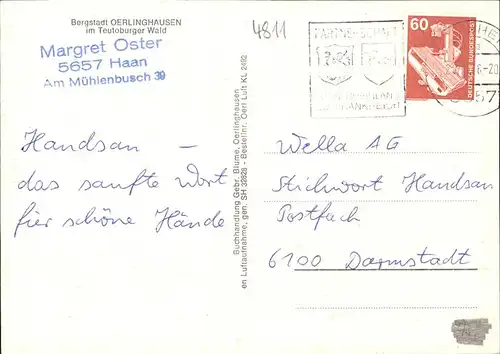 Bergstadt OERLINGHAUSEN
im Teutoburger Wald
4811
Margret Oster
5657 Haan
Am Mühlenbusch 39
Handsan –
das sanfte Wort
fier schöne Hände
Buchhandlung Gebr. Blume, Oerlinghausen
en Luftaufnahme, gen. SH 32628 - Bestellnr. Oerl Luft KL 2492
60
DEUTSCHE BUNDESPOST
Wella AG
Stichwort Handsan
Postfach
6100 Darmstadt